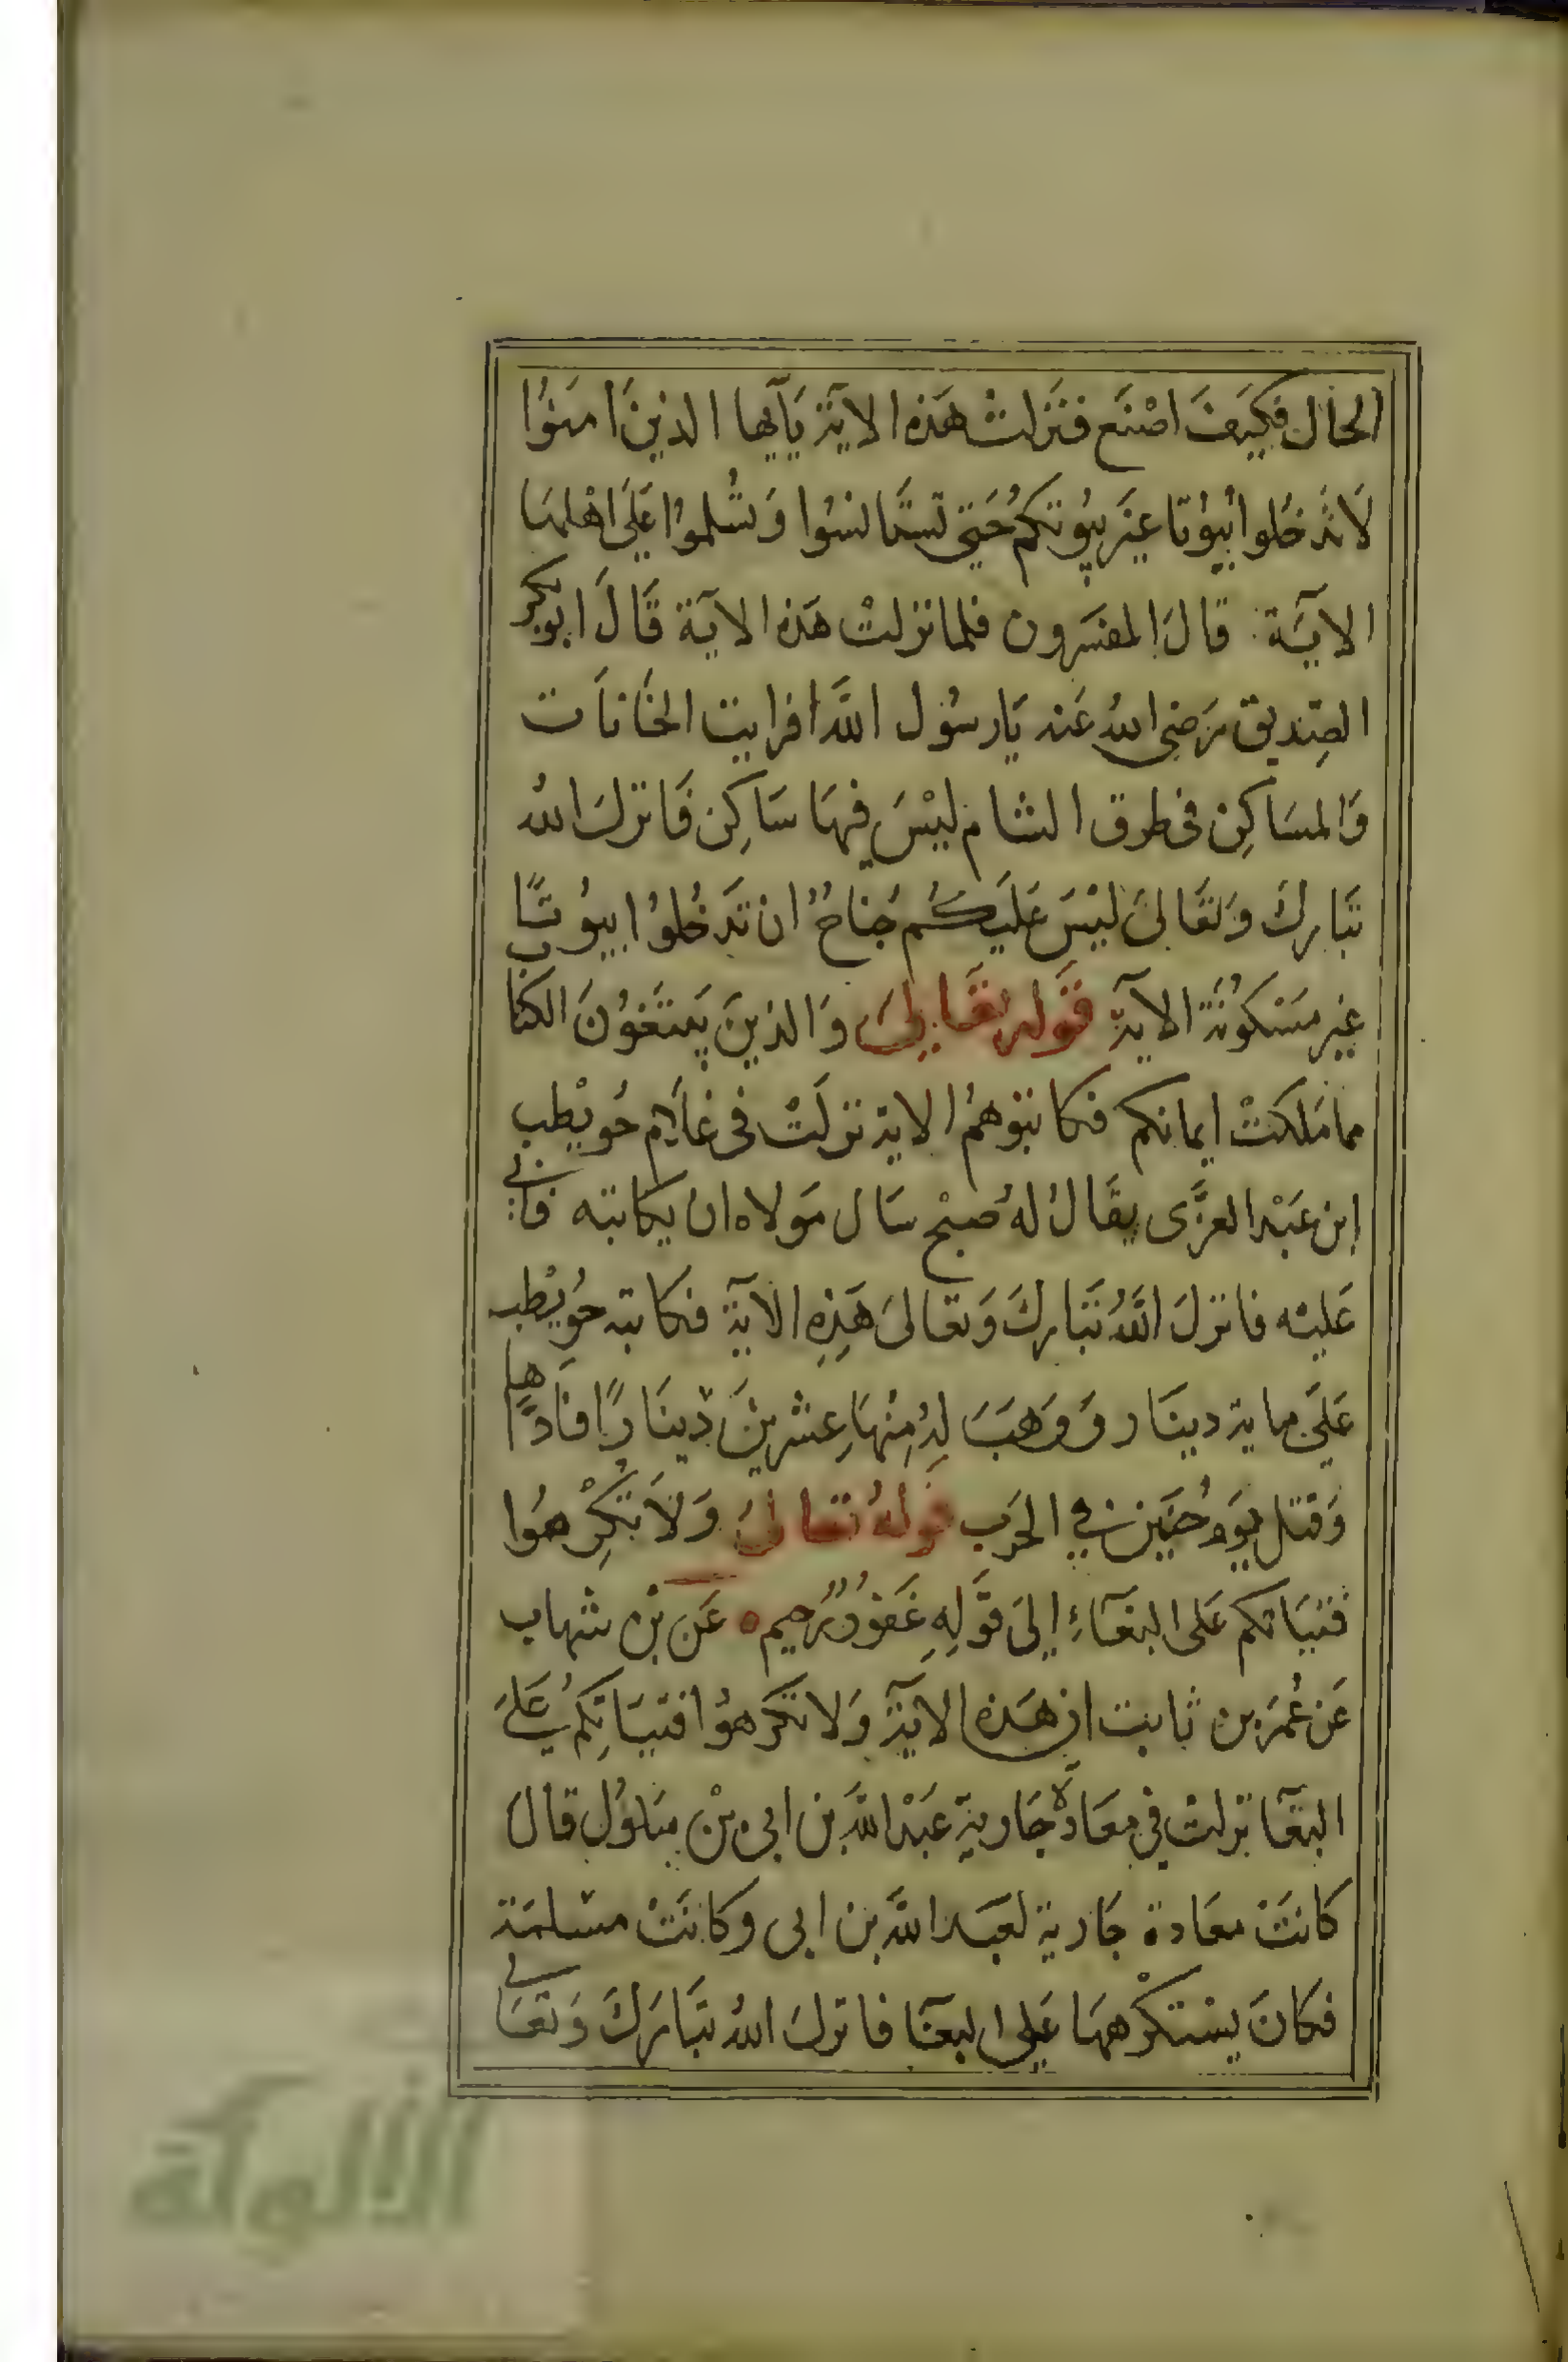 الحال فكيف اصنع فنزلت هذه الاية يآيها الذين امنوا
لا تدخلوا بيوتا غير بيوتكم حتى تستانسوا وتسلموا على اهلها
الاية قال المفسرون فلما نزلت هذه الاية قال ابوبكر
الصديق رضى الله عنه يا رسول الله افرايت الخانات
والمساكن فى طرق الشام ليس فيها ساكن فانزل الله
تبارك وتعالى ليس عليكم جناح ان تدخلوا بيوتا
غير مسكونة الاية قوله تعالى والذين يبتغون الكتا
مما ملكت ايمانكم فكاتبوهم الاية نزلت فى غلام حويطب
ابن عبد العزى يقال له صبح سال مولاه ان يكاتبه فابى
عليه فانزل الله تبارك وتعالى هذه الاية فكاتبه حويطب
على ماية دينار ووهب له منها عشرين دينارا فاداها
وقتل يوم حنين فى الحرب قوله تعالى ولا تكرهوا
فتياتكم على البغاء إلى قوله غفور رحيم ه عن بن شهاب
عن عمر بن ثابت ان هذه الاية ولا تكرهوا فتياتكم على
البغآ نزلت في معادة جارية عبد الله بن ابى بن سلول قال
كانت معادة جارية لعبد الله بن ابى وكانت مسلمة
فكان يستكرهها على البغآ فانزل الله تبارك وتعالى
الألوكة